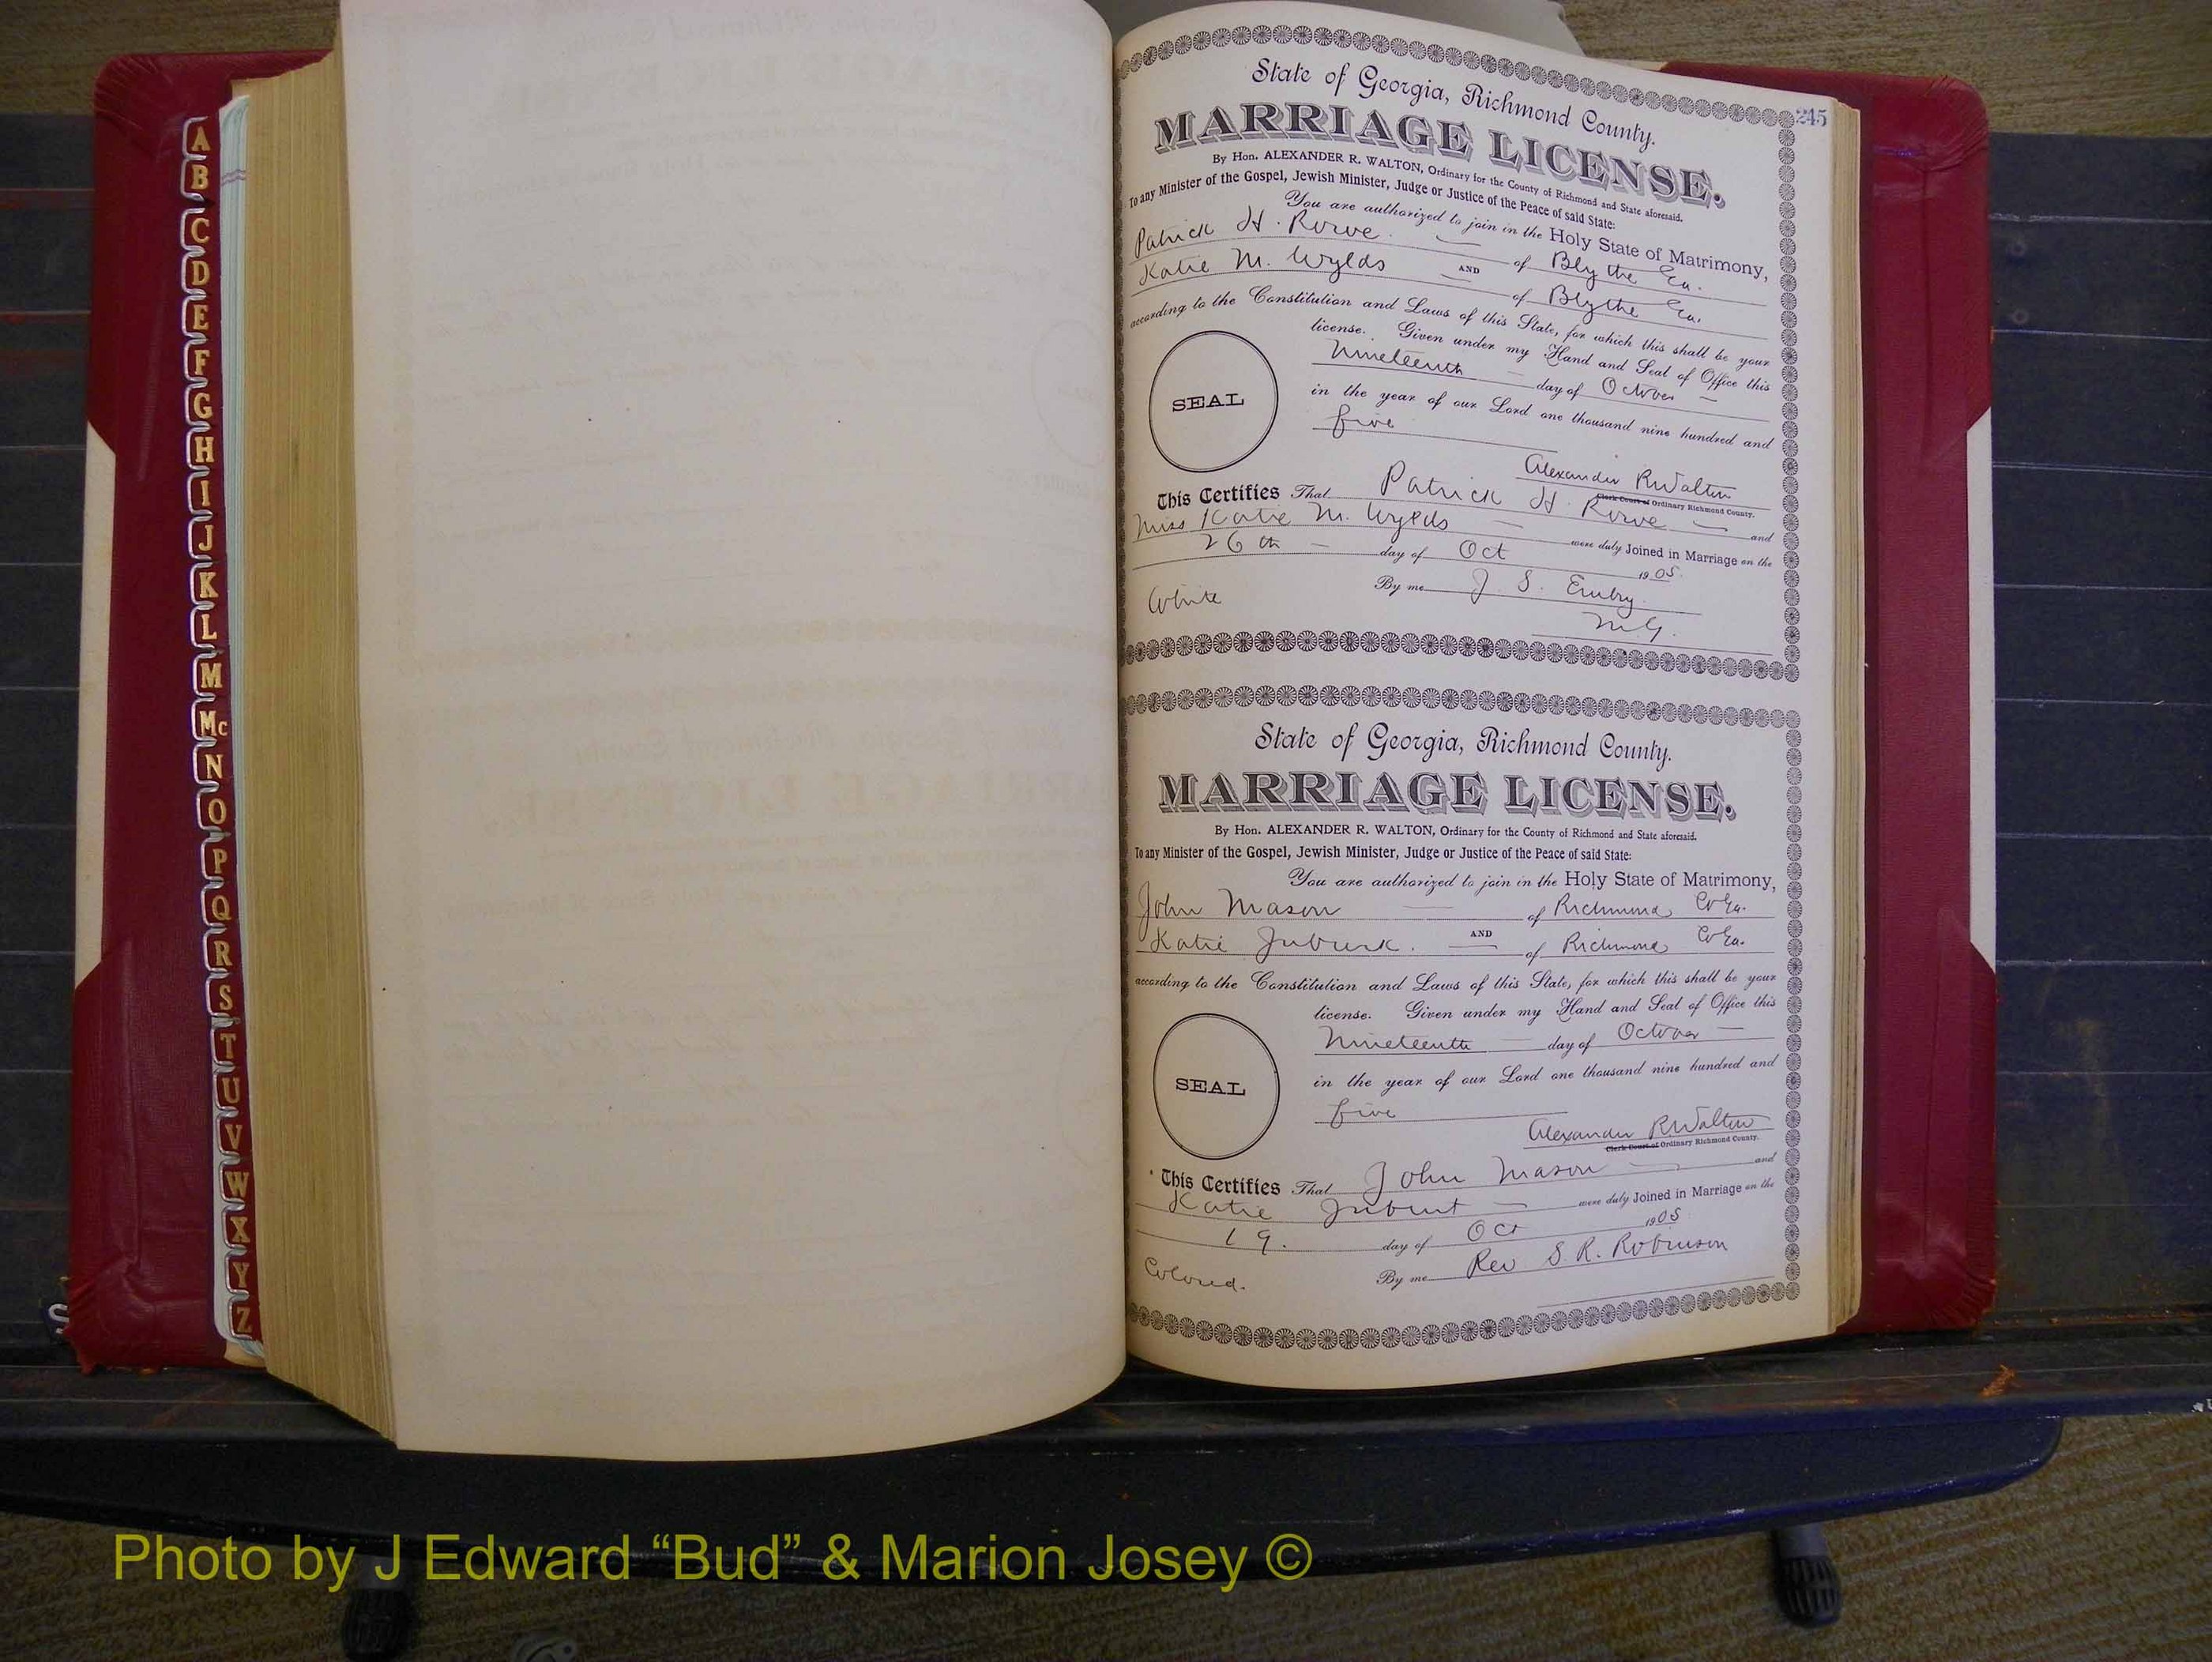 A
B
C
D
E
F
G
H
I
J
K
L
M
Mc
N
O
P
Q
R
S
T
U
V
W
X
Y
Z
245
State of Georgia, Richmond County.
MARRIAGE LICENSE.
By Hon. ALEXANDER R. WALTON, Ordinary for the County of Richmond and State aforesaid.
To any Minister of the Gospel, Jewish Minister, Judge or Justice of the Peace of said State:
You are authorized to join in the Holy State of Matrimony,
Patrick H. Rowe of Blythe Ga.
AND
Katie M. Wylds of Blythe Ga.
according to the Constitution and Laws of this State, for which this shall be your
license. Given under my Hand and Seal of Office this
Nineteenth day of October
SEAL
in the year of our Lord one thousand nine hundred and
five
Alexander R Walton
Clerk Court of Ordinary Richmond County.
This Certifies That Patrick H. Rowe and
Miss Katie M. Wylds were duly Joined in Marriage on the
26th day of Oct 1905.
By me J. S.
White
M G.
State of Georgia, Richmond County.
MARRIAGE LICENSE.
By Hon. ALEXANDER R. WALTON, Ordinary for the County of Richmond and State aforesaid.
To any Minister of the Gospel, Jewish Minister, Judge or Justice of the Peace of said State:
You are authorized to join in the Holy State of Matrimony,
John Mason of Richmond Co Ga.
AND
Katie of Richmond Co Ga.
according to the Constitution and Laws of this State, for which this shall be your
license. Given under my Hand and Seal of Office this
Nineteenth day of October
SEAL
in the year of our Lord one thousand nine hundred and
five
Alexander R Walton
Clerk Court of Ordinary Richmond County.
This Certifies That John Mason and
Katie were duly Joined in Marriage on the
19. day of Oct 1905
By me Rev S. R. Robinson
Colored.
Photo by J Edward “Bud” & Marion Josey ©